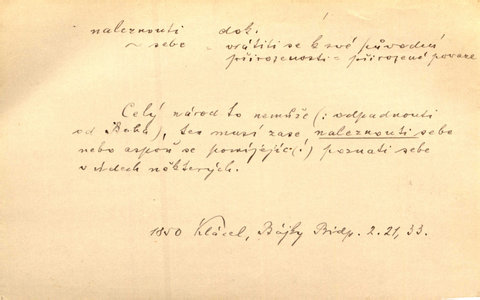 naleznouti dok.
~ sebe = vrátiti se k své původní
přirozenosti = přirozené povaze
Celý národ to nemůže (: odpadnouti
od Boha), ten musí zase naleznouti sebe
nebo aspoň se ponížejíc (!) poznati sebe
v údech některých.
1850 Klácel, Bájky Bidp. 2. 21, 33.